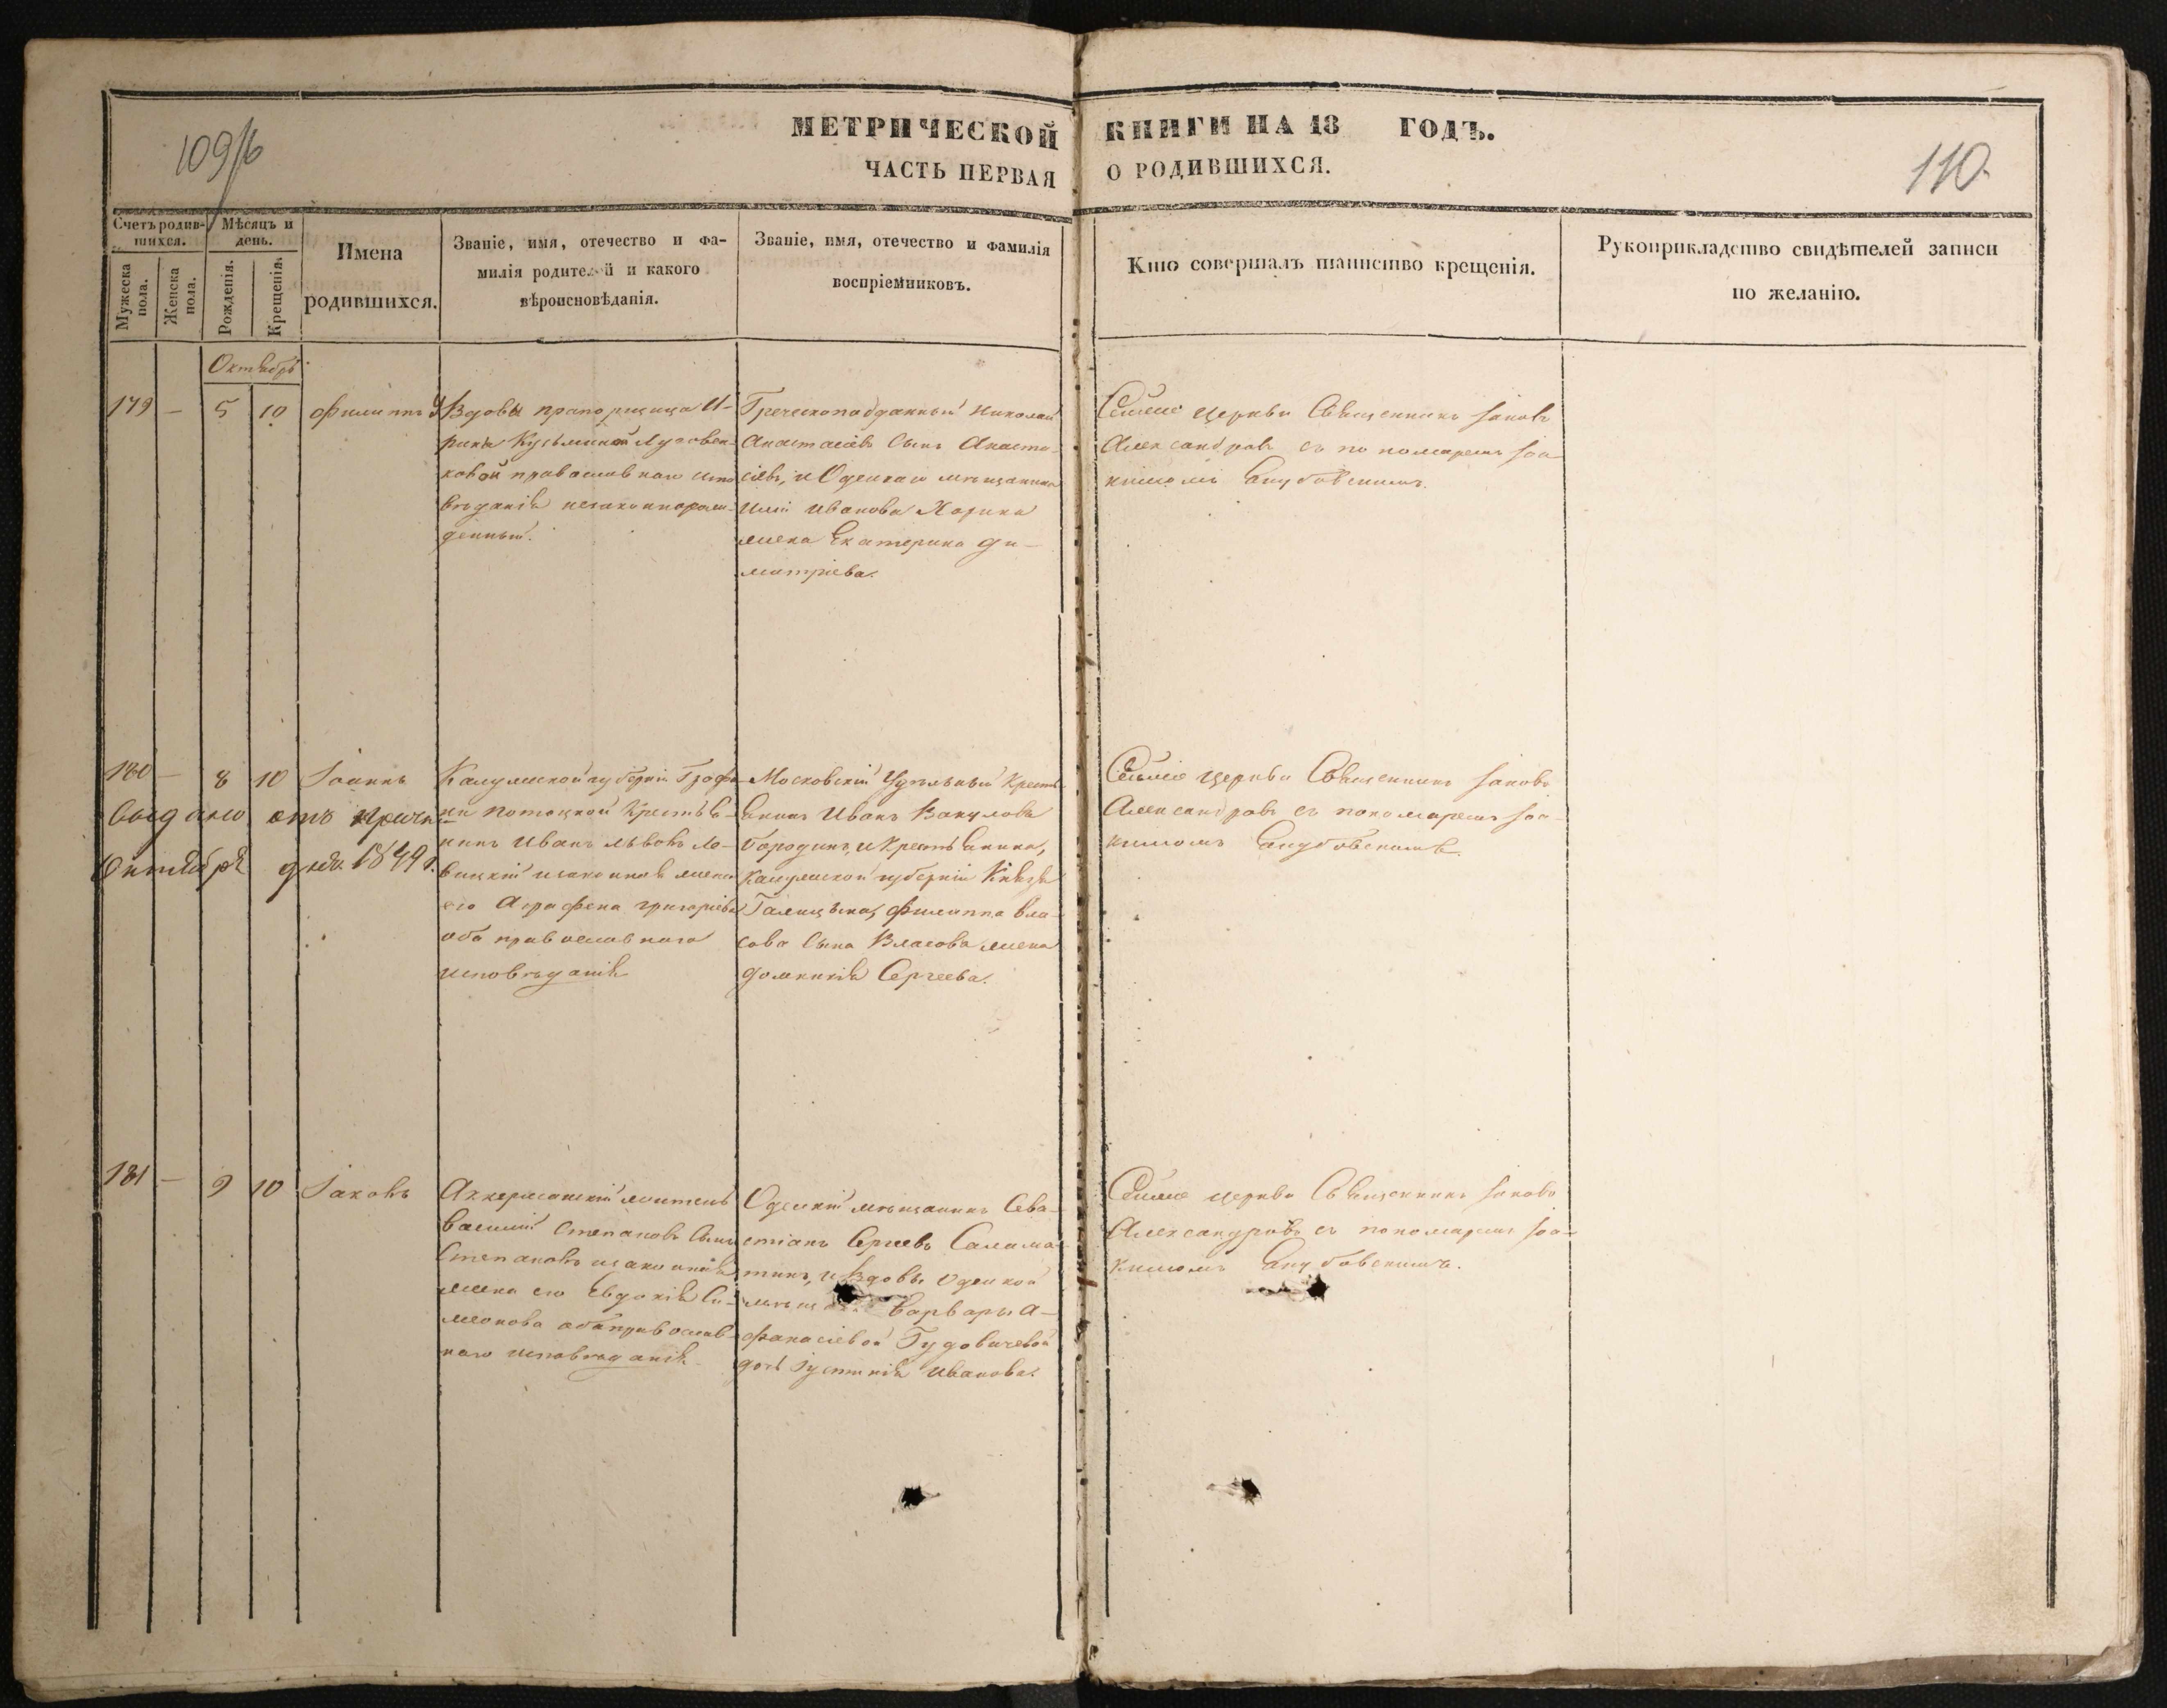 109/б
МЕТРИЧЕСКОЙ КНИГИ НА 18 ГОДЪ.
110.
ЧАСТЬ ПЕРВАЯ О РОДИВШИХСЯ.
Счетъ родив-
шихся.
Мужеска
пола.
Женска
пола.
Мѣсяцъ и
день.
Рожденія.
Крещенія.
Имена
родившихся.
Званіе, имя, отечество и фа-
милія родителей и какого
вѣроисповѣданія.
Званіе, имя, отечество и фамилія
воспріемниковъ.
Кто совершалъ таинство крещенія.
Рукоприкладство свидѣтелей записи
по желанію.
Октябрь
179 — 5 10 Филиппъ
Вдовы прапорщица И-
рина Кузьминой
ковой православнаго испо
вѣданія незаконнорож-
денный.
Греческоподданный Николай
Анастасіевъ сынъ Анаста-
сіевъ, и Одескаго мѣщанина
Иліи Иванова Харина
жена Екатерина Ди-
митріева.
Сей церкви Священникъ Іаковъ
Александровъ съ пономаремъ Іоа-
кимомъ
180 — 8 10 Іоаннъ
Выдано отъ причта
Октября дня 1849 г.
Калужской губерніи Графи-
ни Потоцкой крестья-
нинъ Иванъ Львовъ Ло-
вицкій и законная жена
его Аграфена Григоріева
оба православнаго
исповѣданія
Московскій Удѣльный крестья-
янинъ Иванъ Вакуловъ
Бородинъ, и крестьянина,
Калужской губерніи Князя
Галицына, Филиппа Вла-
сова сына Власова жена
Домникія Сергеева.
Сей церкви Священникъ Іаковъ
Александровъ съ пономаремъ Іоа-
кимомъ
181 — 9 10 Іаковъ
Аккерманскій житель
Василій Степановъ сынъ
Степановъ и законная
жена его Евдокія Си-
меонова оба православ-
наго исповѣданія
Одескій мѣщанинъ Сева-
стіанъ Сергеевъ Салама-
тинъ, и вдовы Одеской
Варвары А-
фанасіевой Гудовичевой
дочь Іустинія Иванова.
Сей церкви Священникъ Іаковъ
Александровъ съ пономаремъ Іоа-
кимомъ